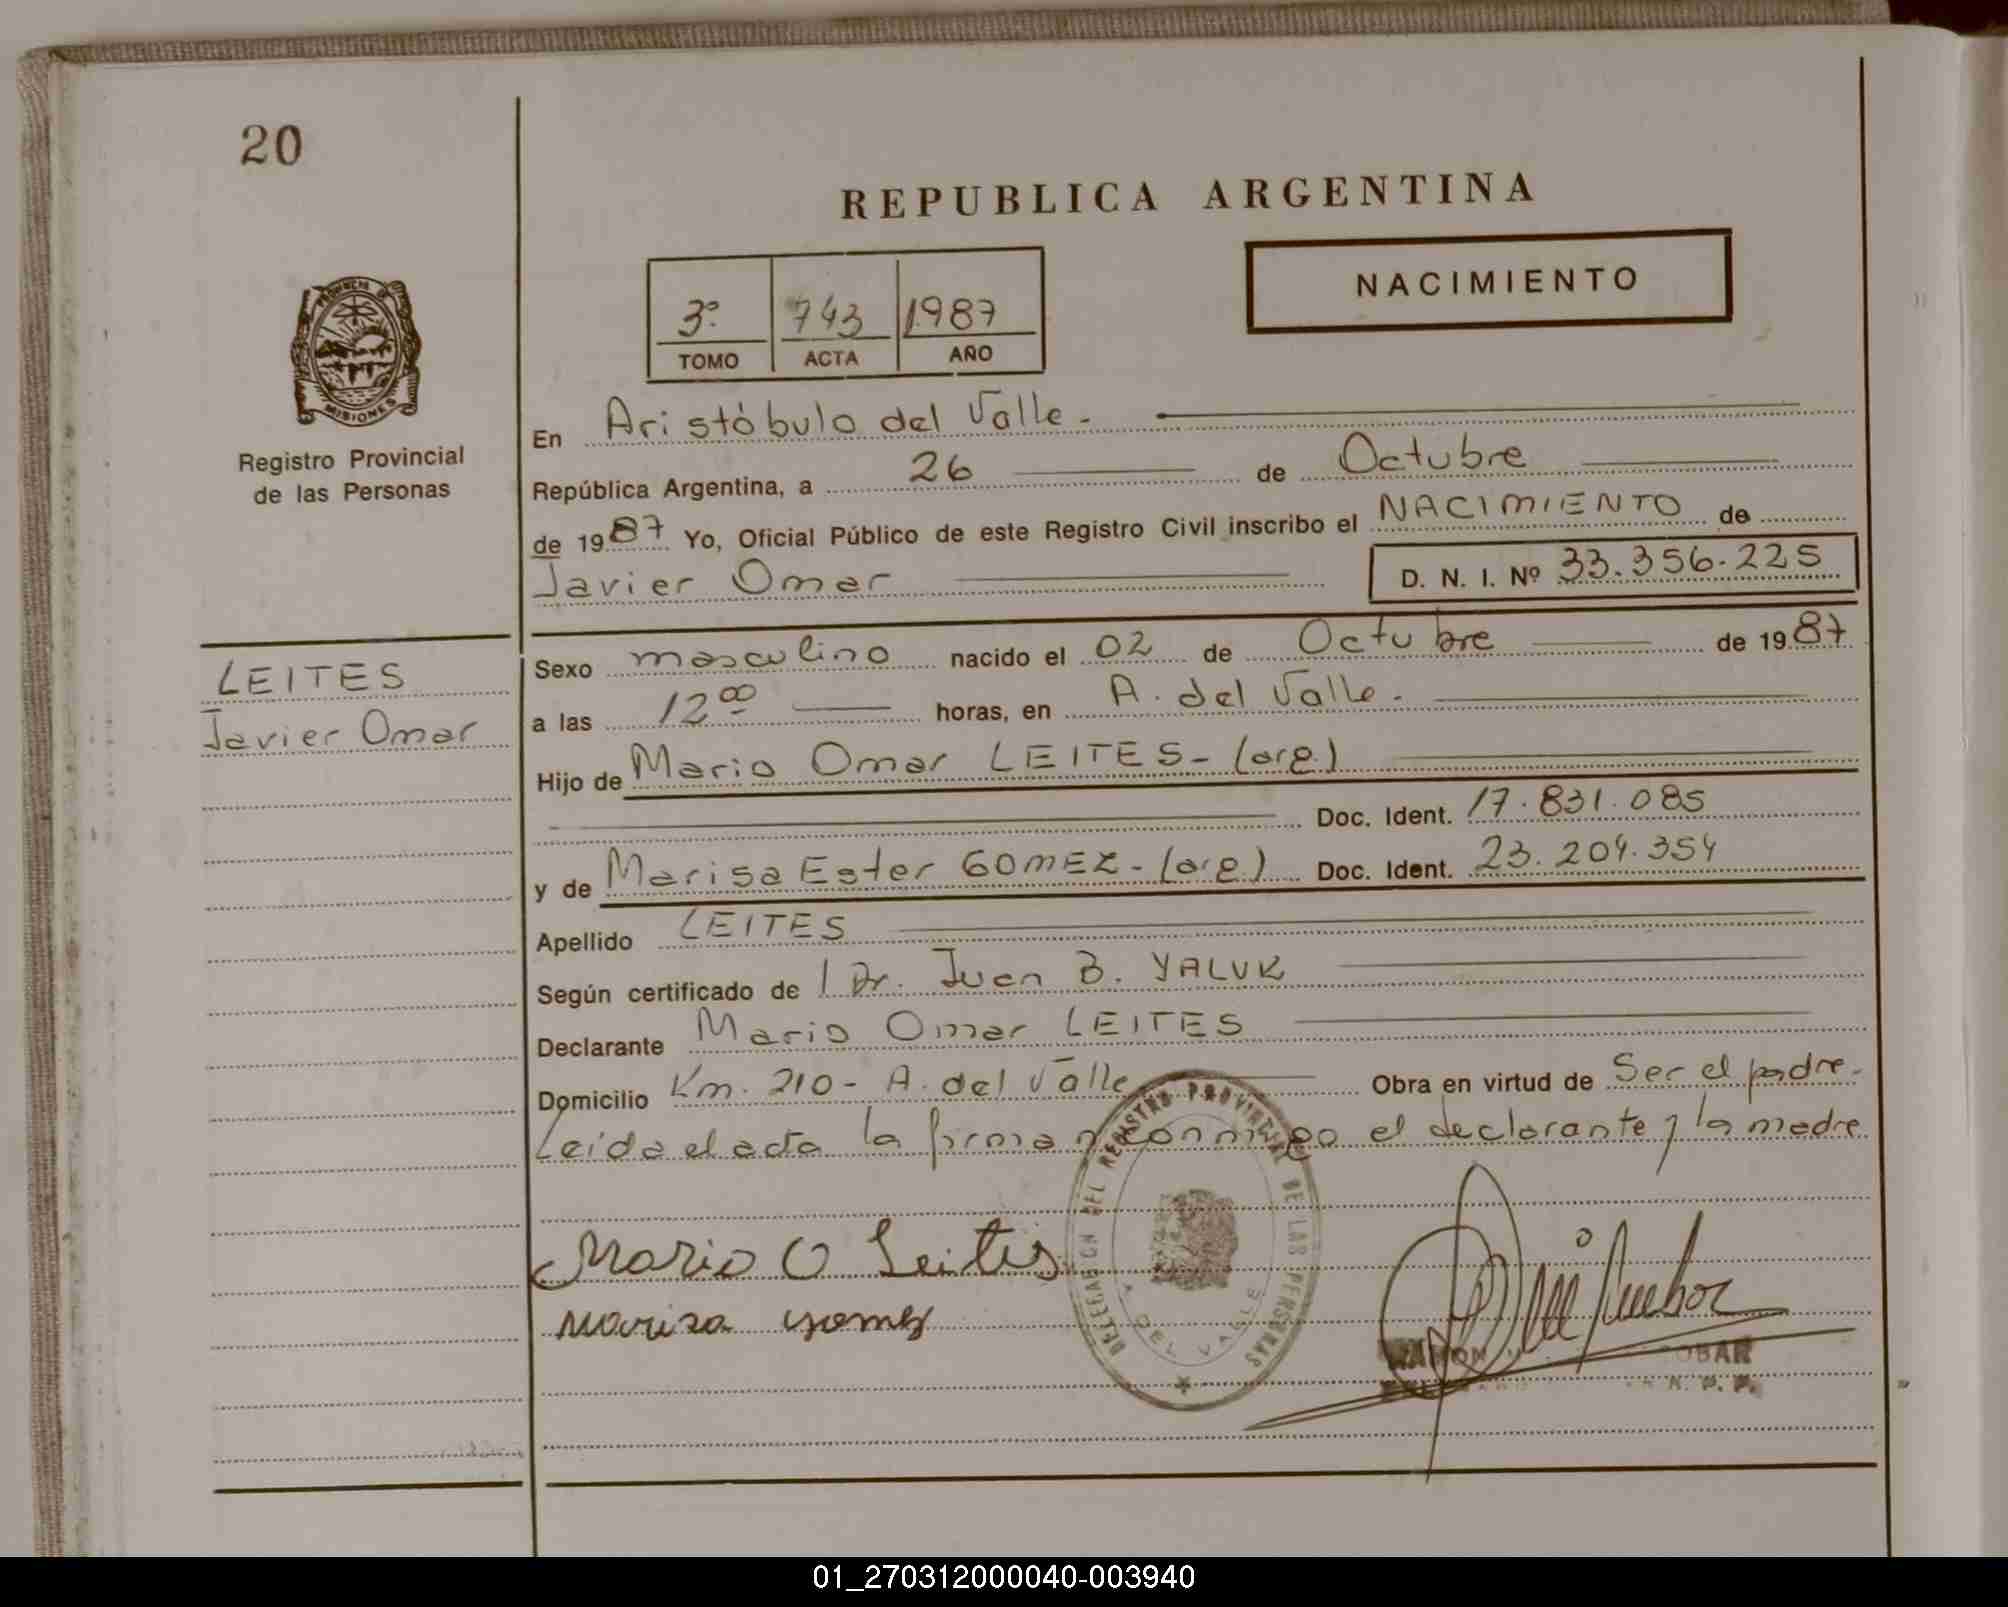 20
REPUBLICA ARGENTINA
NACIMIENTO
3º 743 1987
TOMO ACTA AÑO
PROVINCIA DE
MISIONES
Registro Provincial
de las Personas
En Aristóbulo del Valle.-
República Argentina, a 26 de Octubre
de 1987 Yo, Oficial Público de este Registro Civil inscribo el NACIMIENTO de
Javier Omar
D. N. I. Nº 33.356.225
LEITES
Javier Omar
Sexo masculino nacido el 02 de Octubre de 1987
a las 12 00 horas, en A. del Valle.-
Hijo de Mario Omar LEITES - (arg.)
Doc. Ident. 17.831.085
y de Marisa Ester GOMEZ - (arg.) Doc. Ident. 23.204.354
Apellido LEITES
Según certificado de Dr. Juan B. YALUK
Declarante Mario Omar LEITES
Domicilio Km. 210 - A. del Valle Obra en virtud de Ser el padre.-
Leída el acta la firman conmigo el declarante y la madre
DELEGACION DEL REGISTRO PROVINCIAL DE LAS PERSONAS
A. DEL VALLE
Mario O Leites
Marisa gomez
RAMON
OBAR
R. P. P.
01_270312000040-003940